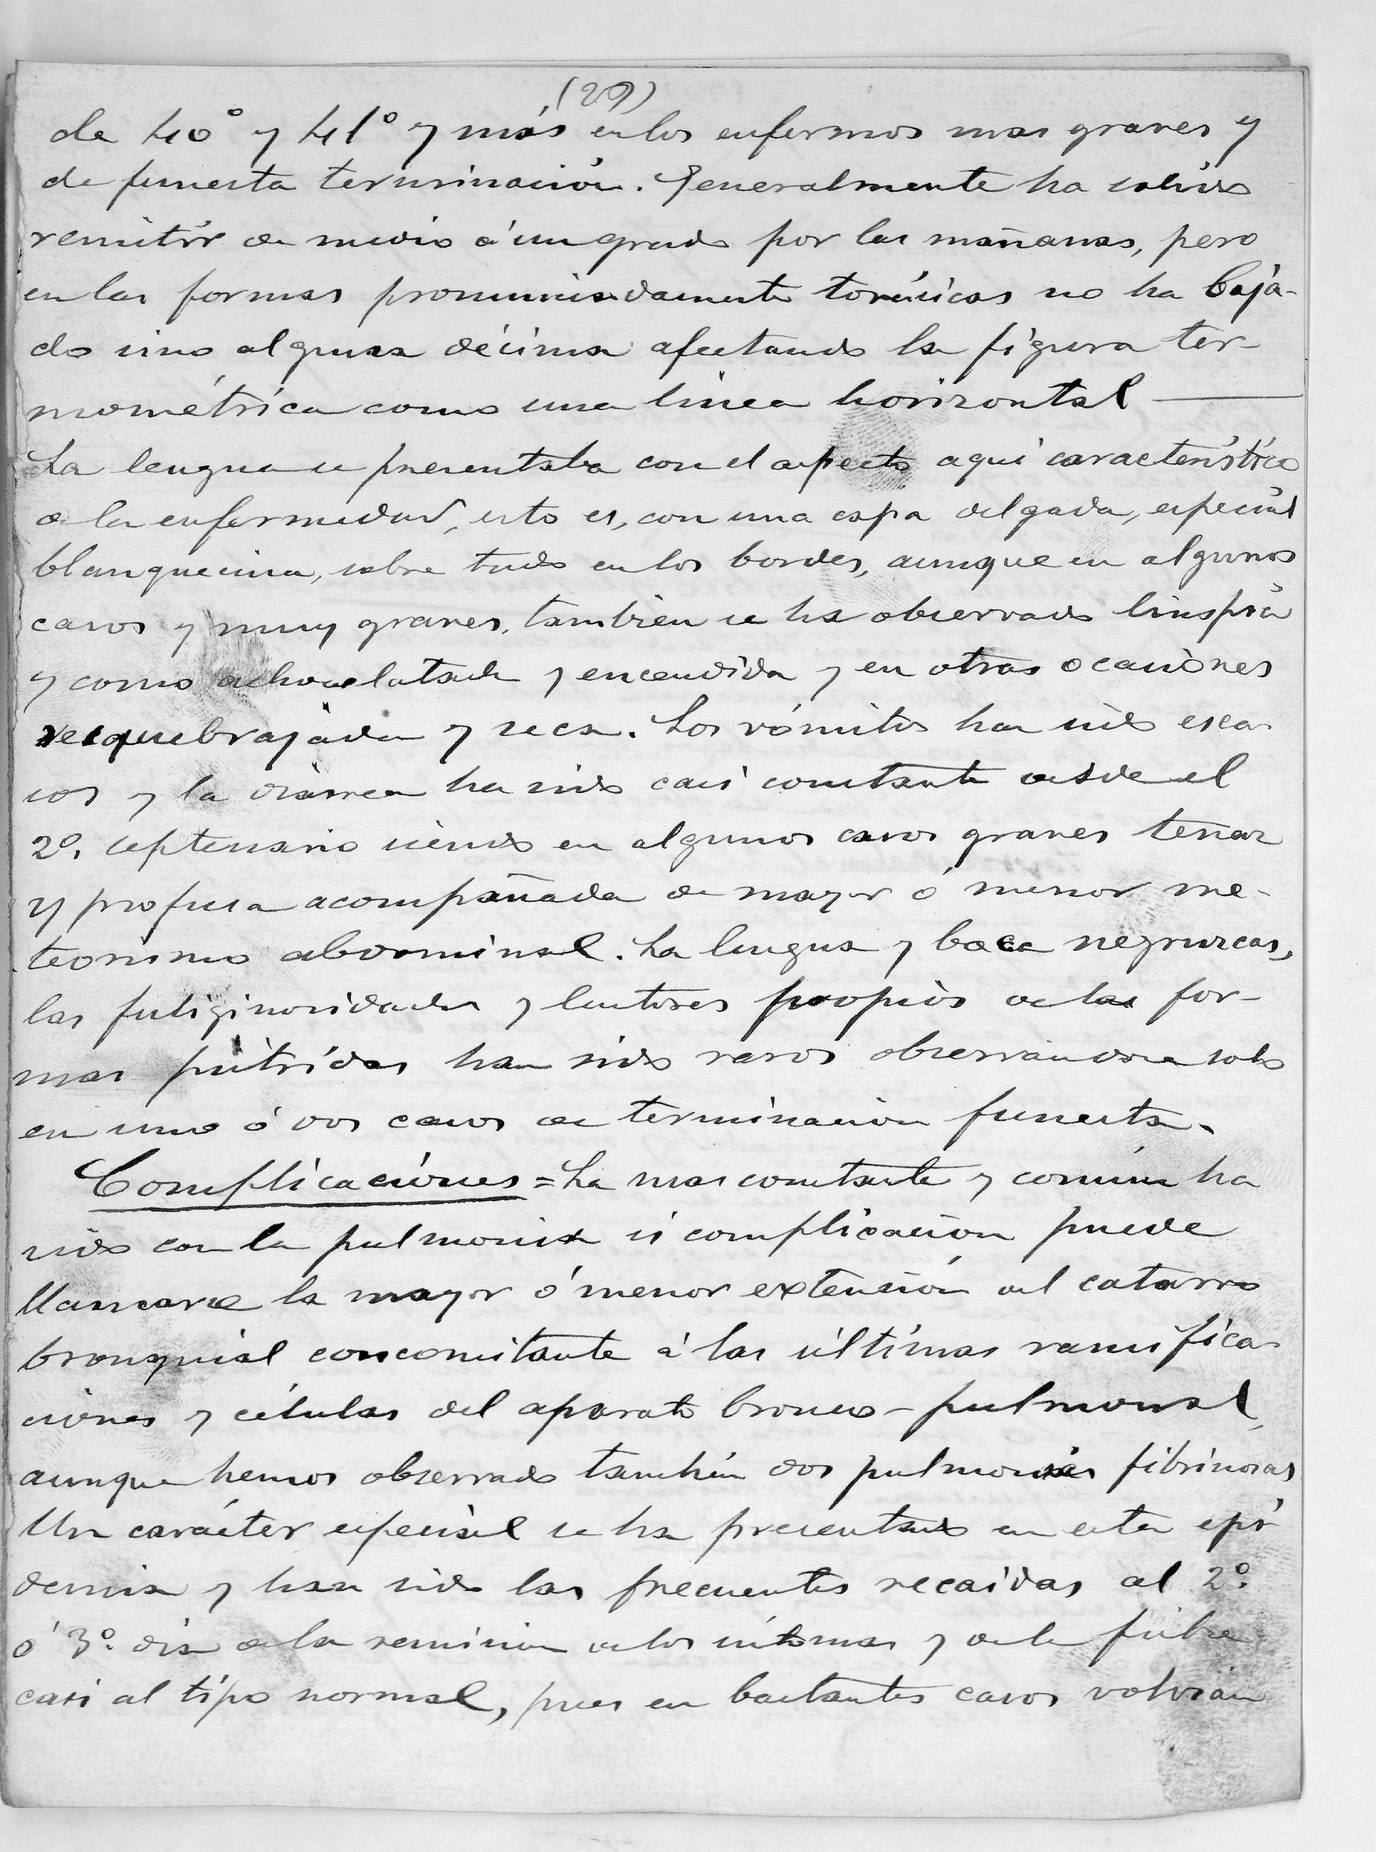 (29)
de 40° y 41° y más en los enfermos mas graves y
de funesta terminación. Generalmente ha solido
remitir de medio á un grado por las mañanas, pero
en las formas pronunciadamente torácicas no ha baja-
do sino algunas décimas afectando la figura ter-
mométrica como una linea horizontal
La lengua se presentaba con el aspecto aqui caracteristico
de la enfermedad, esto es, con una capa delgada, especial
blanquecina, sobre todo en los bordes, aunque en algunos
casos y muy graves, tambien se ha observado limpia
y como achocolatada y encendida y en otras ocasiones
resquebrajada y seca. Los vómitos han sido esca-
sos y la diarrea ha sido casi constante desde el
2º. septenario siendo en algunos casos graves tenaz
y profusa acompañada de mayor ó menor me-
teorismo abdominal. La lengua y boca negruzcas,
las fuliginosidades y lentores propios de las for-
mas pútridas han sido raros observandose solo
en uno ó dos casos de terminacion funesta.
Complicaciones = La mas constante y comun ha
sido con la pulmonia si complicacion puede
llamarse la mayor ó menor extensión del catarro
bronquial concomitante á las últimas ramifica-
ciones y células del aparato bronco-pulmonal,
aunque hemos observado también dos pulmonias fibrinosas
Un carácter especial se ha presentado en esta epi-
demia y han sido las frecuentes recaidas al 2º.
ó 3º. dia de la remision de los síntomas y de la fiebre
casi al tipo normal, pues en bastantes casos volvian